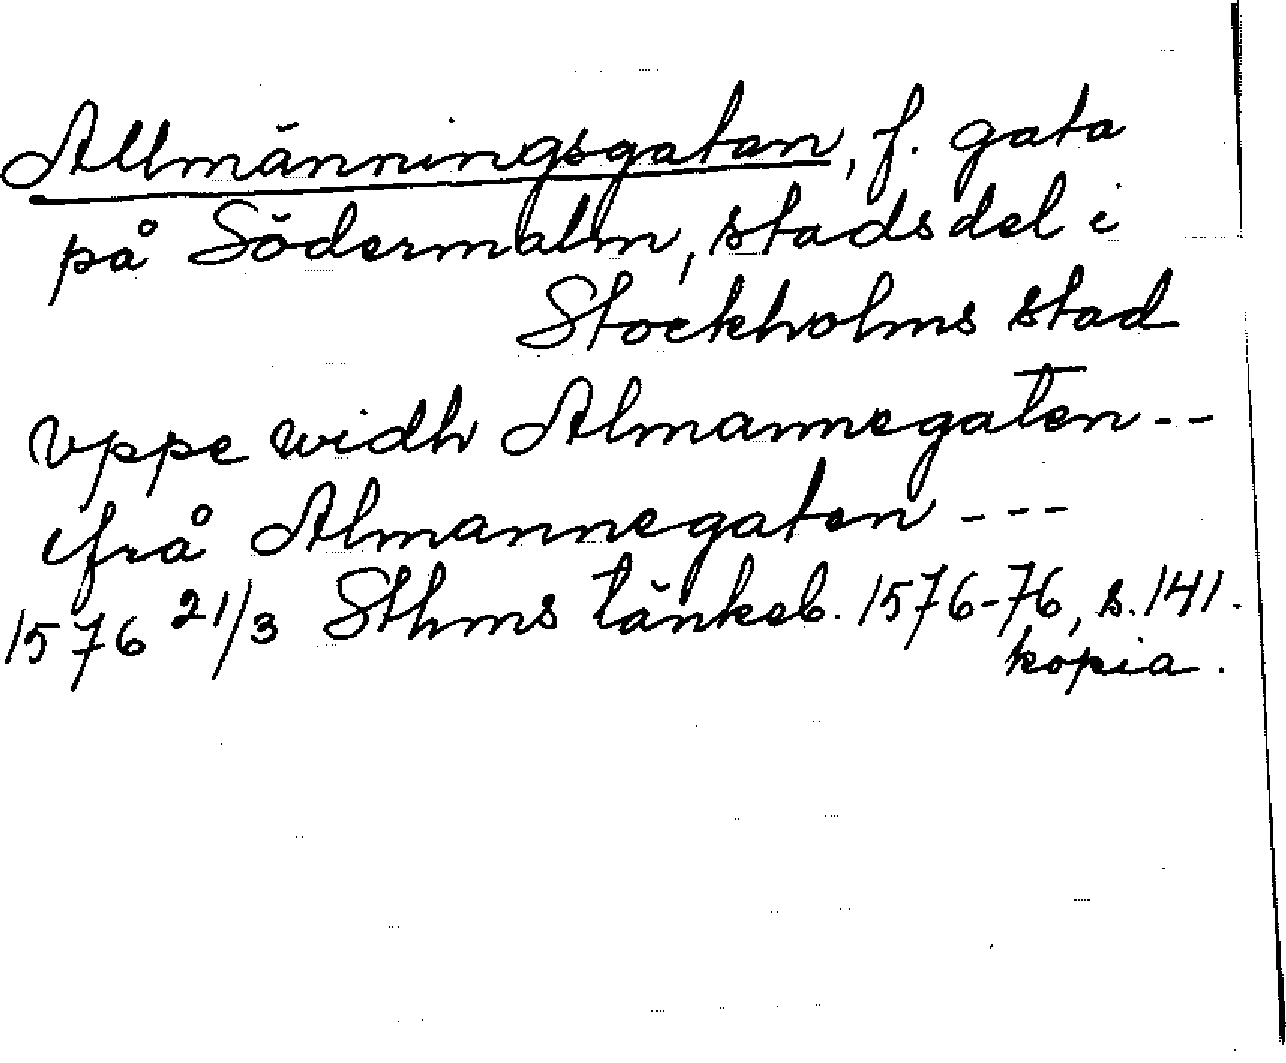 Allmänningsgatan, f. gata
på Södermalm, stadsdel i
Stockholms stad
Vppe widh Almannegaten - -
ifrå Almannegaten - - -
1576 21/3 Sthms tänkeb. 1576-76, s. 141.
kopia.